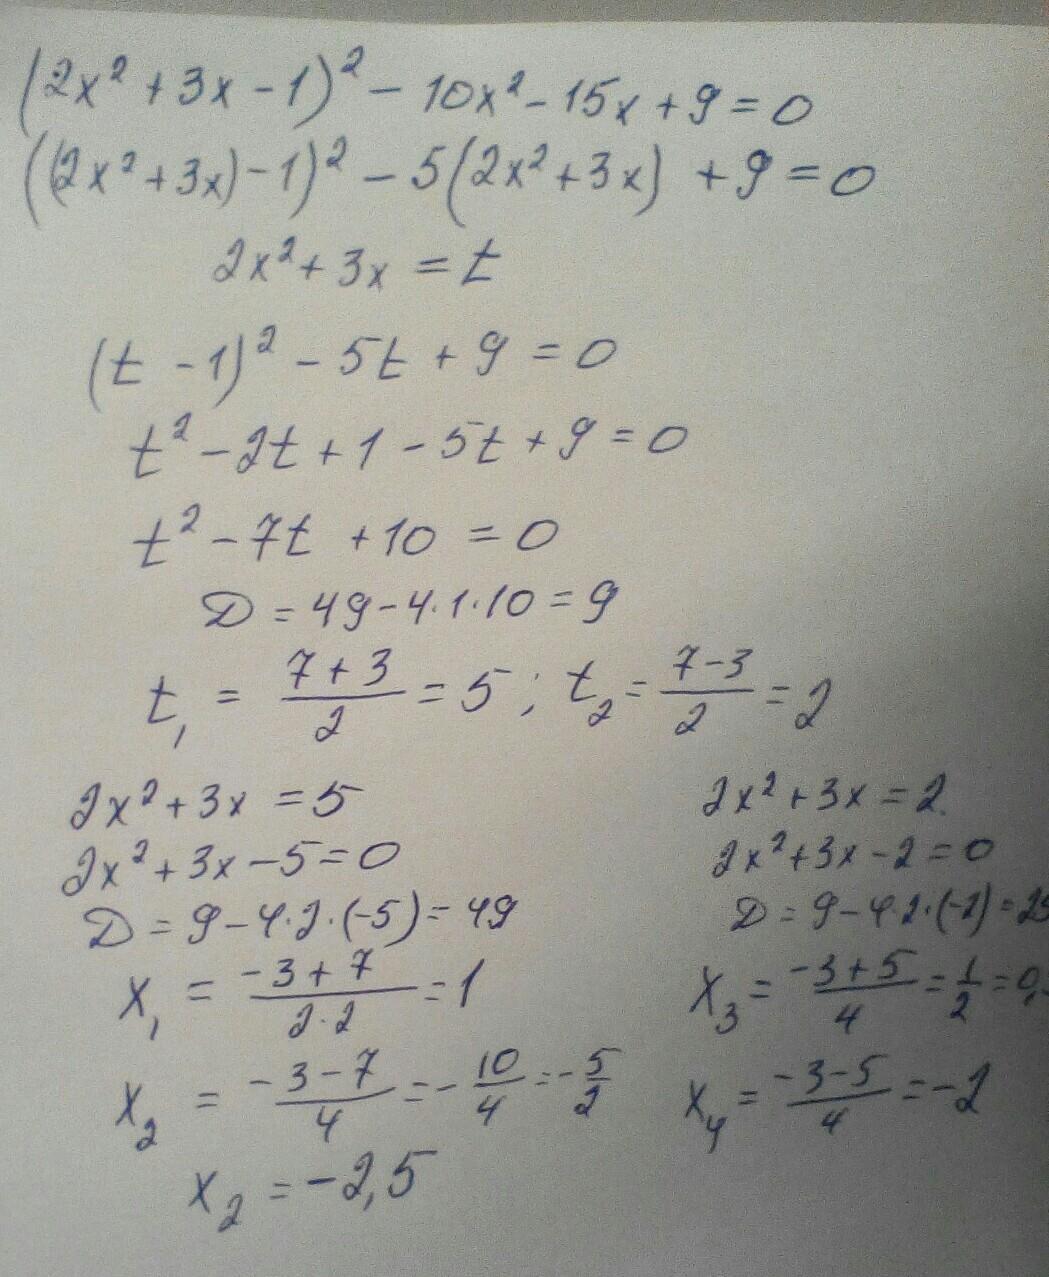 (2x² + 3x - 1)² - 10x² - 15x + 9 = 0
((2x² + 3x) - 1)² - 5(2x² + 3x) + 9 = 0
2x² + 3x = t
(t - 1)² - 5t + 9 = 0
t² - 2t + 1 - 5t + 9 = 0
t² - 7t + 10 = 0
D = 49 - 4·1·10 = 9
t₁ = (7 + 3)/2 = 5 ; t₂ = (7 - 3)/2 = 2
2x² + 3x = 5
2x² + 3x - 5 = 0
D = 9 - 4·2·(-5) = 49
x₁ = (-3 + 7)/(2·2) = 1
x₂ = (-3 - 7)/4 = -10/4 = -5/2
x₂ = -2,5
2x² + 3x = 2
2x² + 3x - 2 = 0
D = 9 - 4·2·(-2) = 25
x₃ = (-3 + 5)/4 = 1/2 = 0,
x₄ = (-3 - 5)/4 = -2